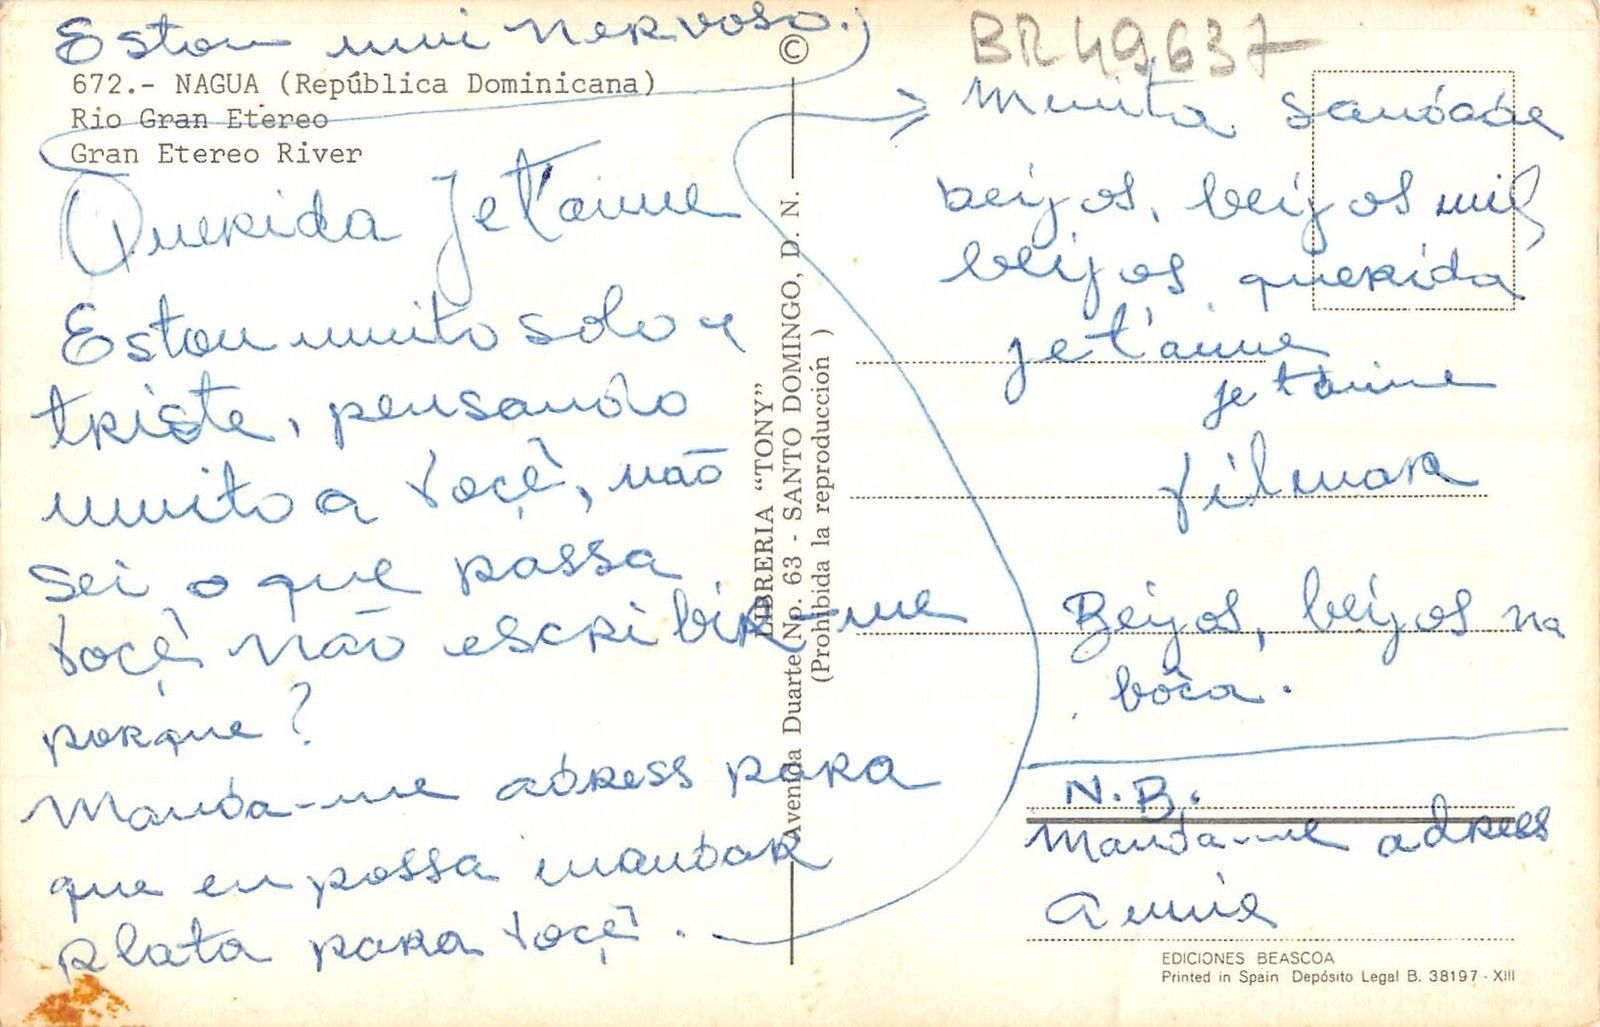 Estou mui nervoso.
BR49637
©
672.- NAGUA (República Dominicana)
Rio Gran Etereo
Gran Etereo River
Querida Je t'aime
Estou muito solo y
triste, pensando
muito a voçê, não
sei o que passa
voçê não escribir-me
porque?
Manda-me adress para
que eu possa mandar
plata para voçê.
LIBRERIA "TONY"
Avenida Duarte No. 63 - SANTO DOMINGO, D. N.
(Prohibida la reproducción)
Muita saudade
beijos, beijos mil
beijos querida
je t'aime
je t'aime
Vilmar
Beijos, beijos na
boca.
N.B.
Manda-me adress
Annie
EDICIONES BEASCOA
Printed in Spain Depósito Legal B. 38197 - XIII